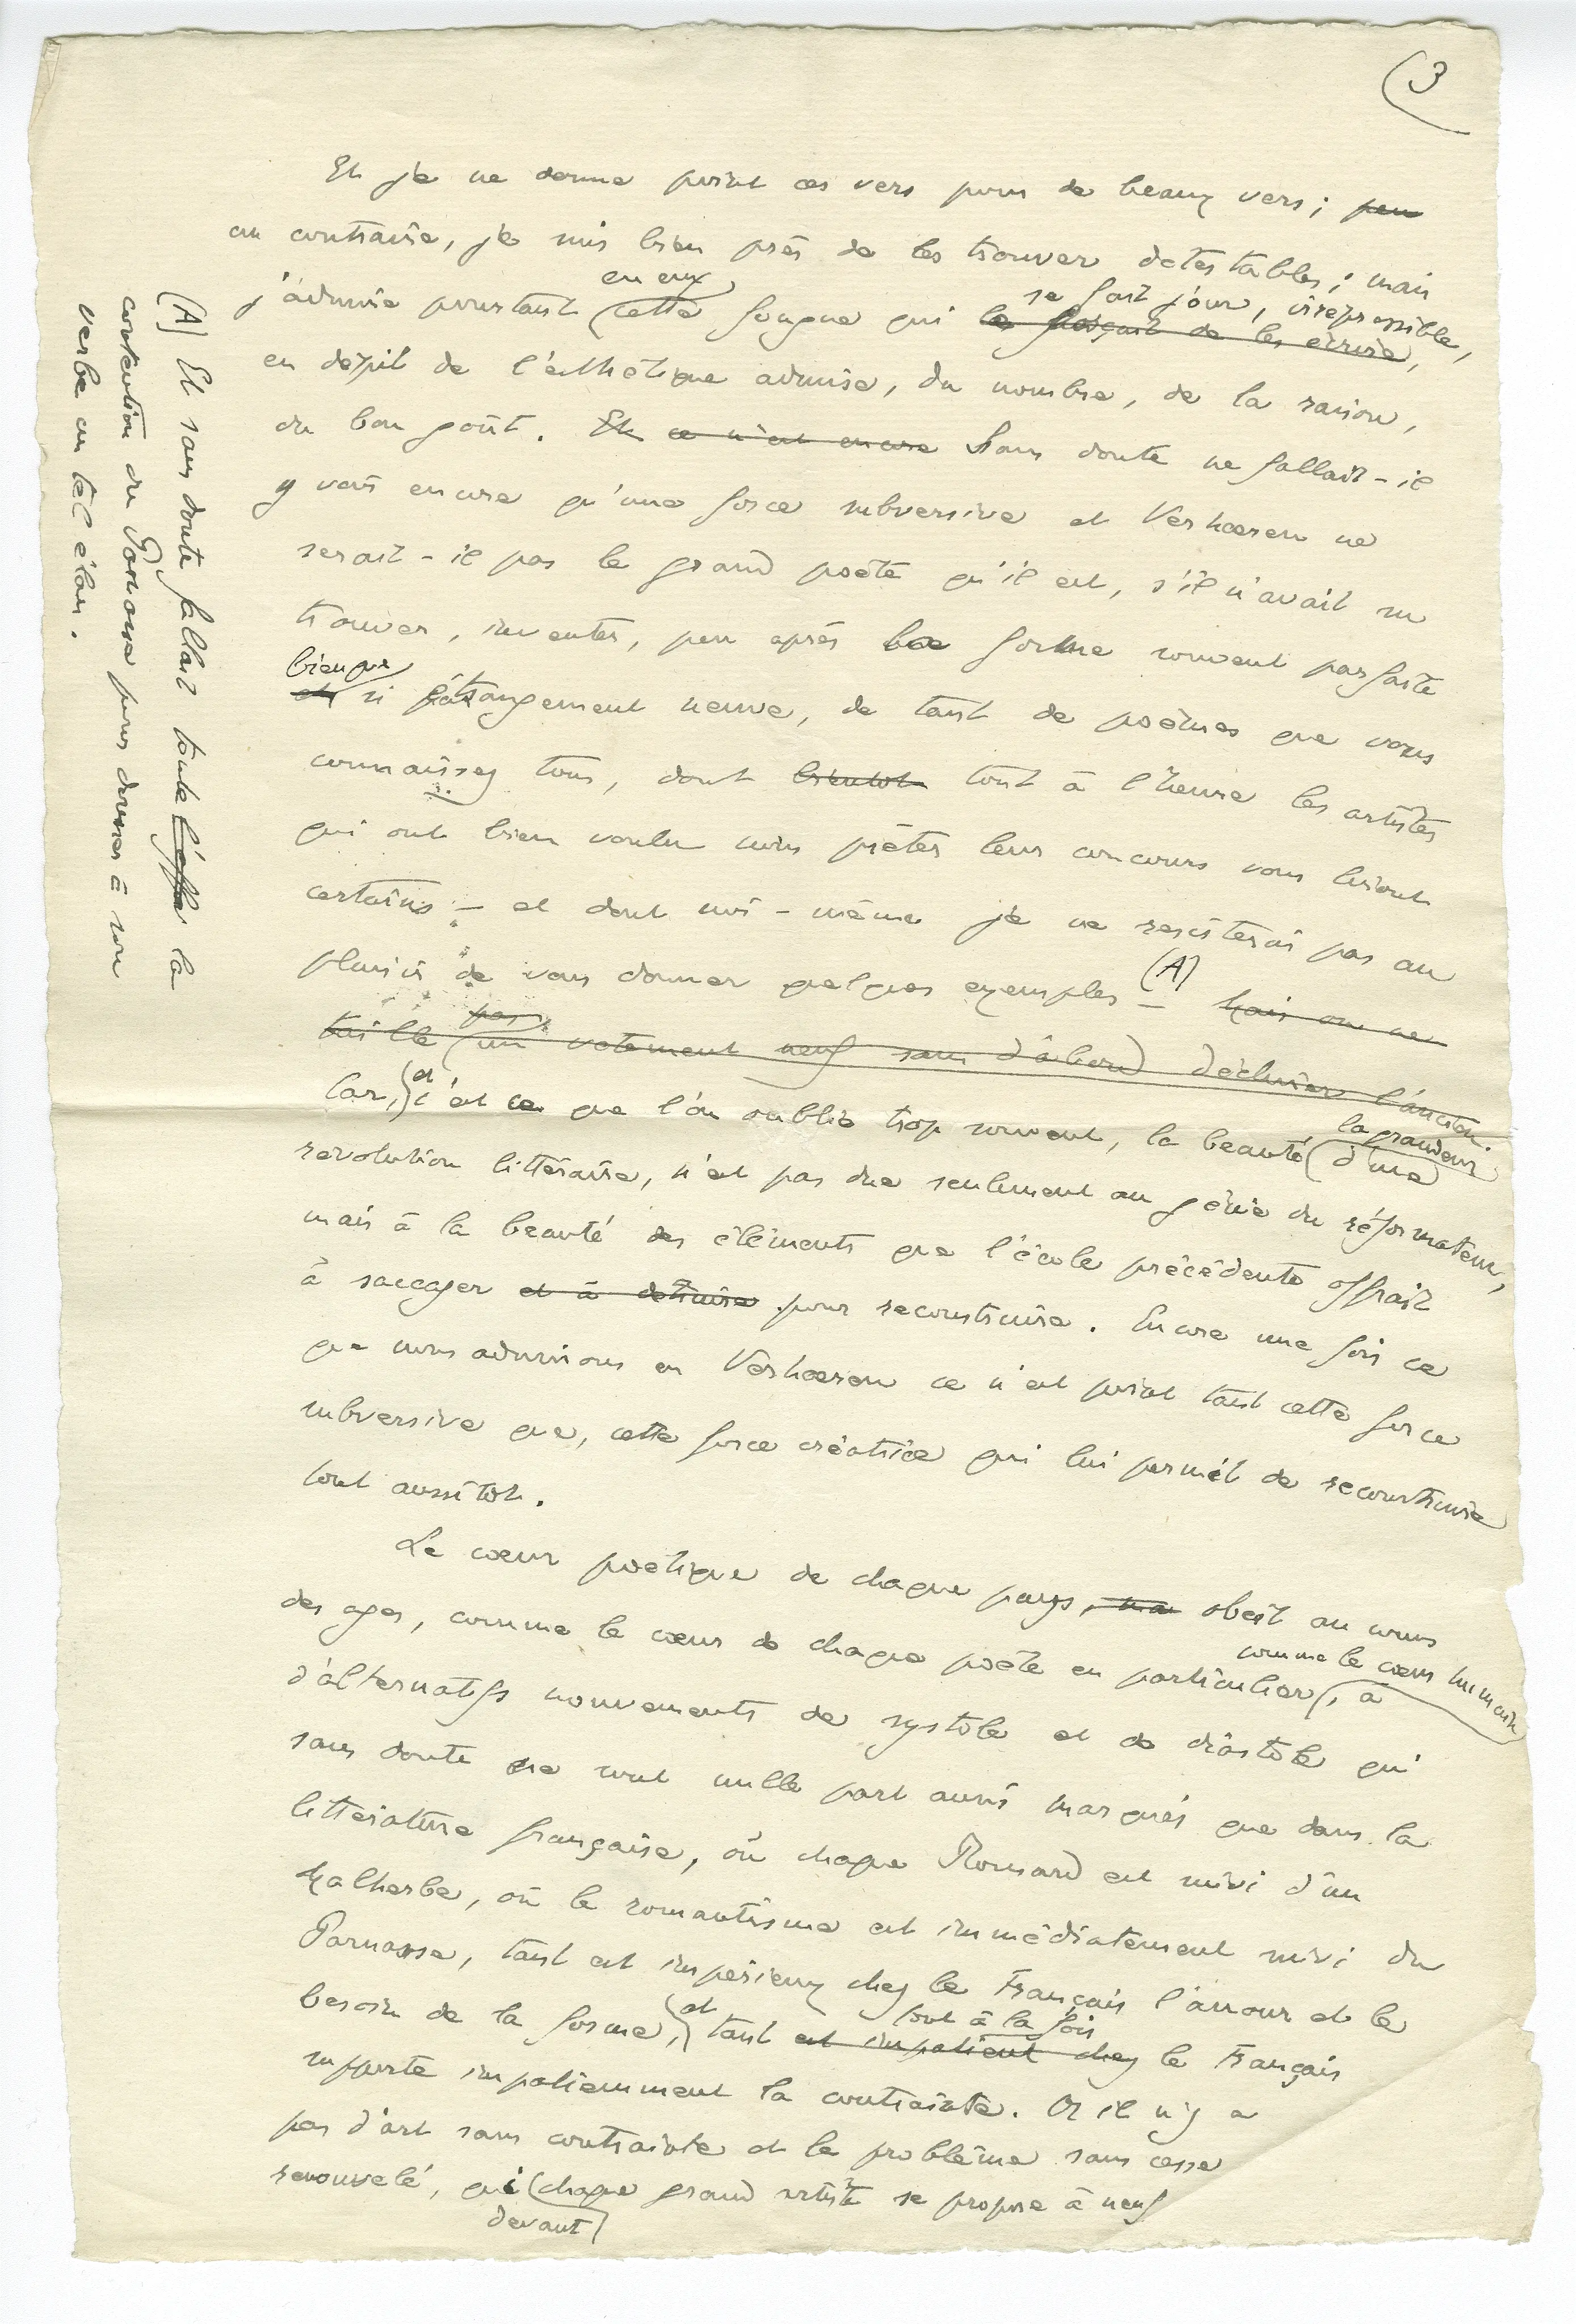 (3
Et je ne donne point ces vers pour de beaux vers ; peu
au contraire, je suis bien près de les trouver détestables ; mais
en eux
se fait jour, irrépressible,
j'admire pourtant cette fougue qui le forçait de les écrire,
en dépit de l'esthétique admise, du nombre, de la raison,
du bon goût. Et ce n'est encore Sans doute ne fallait-il
y voir encore qu'une force subversive et Verhaeren ne
serait-il pas le grand poète qu'il est, s'il n'avait su
trouver, inventer, peu après la forme souvent parfaite
bienque
et si étrangement neuve, de tant de poèmes que vous
connaissez tous, dont bientot tout à l'heure les artistes
qui ont bien voulu nous prêter leur concours vous liront
certains – et dont moi-même je ne resisterai pas au
plaisir de vous donner quelques exemples – (A) Mais on ne
pas
taille un vetement neuf sans d'abord déchirer l'ancien.
Car, et c'est ce que l'on oublie trop souvent, la beauté la grandeur d'une
revolution littéraire, n'est pas due seulement au génie du réformateur,
mais à la beauté des éléments que l'école précédente offrait
à saccager et à détruire pour reconstruire. Encore une fois ce
que nous admirons en Verhaeren ce n'est point tant cette force
subversive que, cette force créatrice qui lui permet de reconstruire
tout aussitôt.
Le cœur poétique de chaque pays, obeit au cours
des ages, comme le cœur de chaque poète en particulier, comme le cœur humain à
d'alternatifs mouvements de systole et de diastole qui
sans doute ne sont nulle part aussi marqués que dans la
litterature française, où chaque Ronsard est suivi d'un
Malherbe, où le romantisme est immédiatement suivi du
Parnasse, tant est impérieux chez le Français l'amour et le
besoin de la forme, et tant tout à la fois est impatient chez le Français
supporte impatiemment la contrainte. Or il n'y a
pas d'art sans contrainte et le problème sans cesse
renouvelé, qui chaque grand artiste se propose à neuf
devant
(A) Et sans doute fallait toute l'effo la
contention du Parnasse pour donner à son
verbe un tel élan.